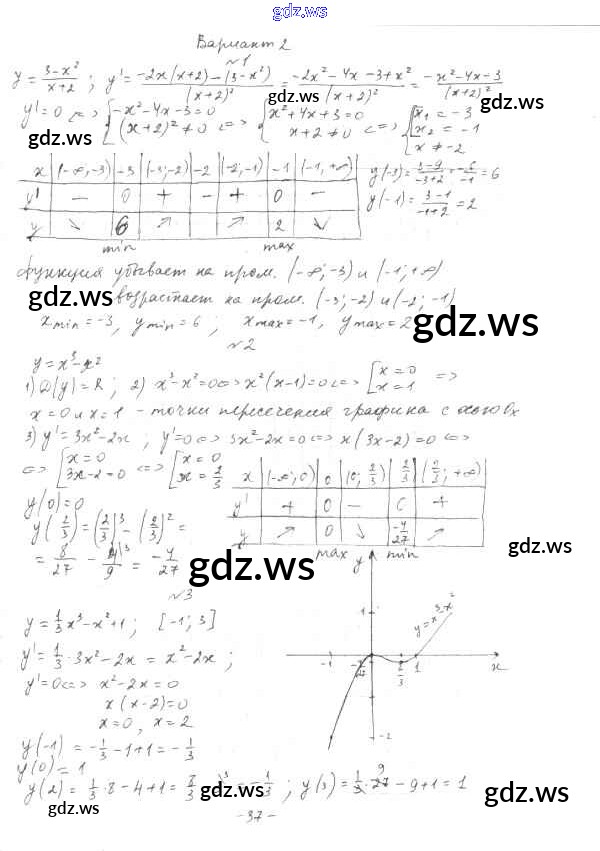 gdz.ws
Вариант 2
№1
y = (3-x²)/(x+2) ; y' = (-2x(x+2)-(3-x²))/(x+2)² = (-2x²-4x-3+x²)/(x+2)² = (-x²-4x-3)/(x+2)²
y'=0 <=> { -x²-4x-3=0 (x+2)²≠0 <=> { x²+4x+3=0 x+2≠0 <=> { x₁=-3 x₂=-1 x≠-2
gdz.ws gdz.ws gdz.ws
x | (-∞;-3) | -3 | (-3;-2) | -2 | (-2;-1) | -1 | (-1;+∞)
y' | − | 0 | + | − | + | 0 | −
y | ↘ | 6 | ↗ | | ↗ | 2 | ↘
min max
y(-3) = (3-9)/(-3+2) = -6/-1 = 6
y(-1) = (3-1)/(-1+2) = 2
gdz.ws gdz.ws
функция убывает на пром. (-∞;-3) и (-1;+∞)
возрастает на пром. (-3;-2) и (-2;-1)
gdz.ws
x min = -3, y min = 6 ; x max = -1, y max = 2
gdz.ws
№2
y = x³-x²
1) D(y) = R ; 2) x³-x²=0 <=> x²(x-1)=0 <=> [ x=0 x=1 =>
x=0 и x=1 - точки пересечения графика с осью Ox
3) y'=3x²-2x ; y'=0 <=> 3x²-2x=0 <=> x(3x-2)=0 <=>
<=> [ x=0 3x-2=0 <=> [ x=0 x=2/3
x | (-∞;0) | 0 | (0;2/3) | 2/3 | (2/3;+∞)
y' | + | 0 | − | 0 | +
y | ↗ | 0 | ↘ | -4/27 | ↗
max min
gdz.ws
y(0)=0
y(2/3) = (2/3)³ - (2/3)² =
= 8/27 - 4/9 = -4/27
gdz.ws gdz.ws
y
1
y=x³-x²
-1 2/3 1 x
-2
№3
gdz.ws
y = 1/3 x³-x²+1 ; [-1; 3]
y' = 1/3 · 3x²-2x = x²-2x ;
y'=0 <=> x²-2x=0
x(x-2)=0
x=0, x=2
y(-1) = -1/3 -1+1 = -1/3
gdz.ws
y(0) = 1
y(2) = 1/3 · 8-4+1 = 8/3 - 3 = -1/3 ; y(3) = 1/3 · 27 - 9+1 = 1
gdz.ws gdz.ws gdz.ws
- 37 -